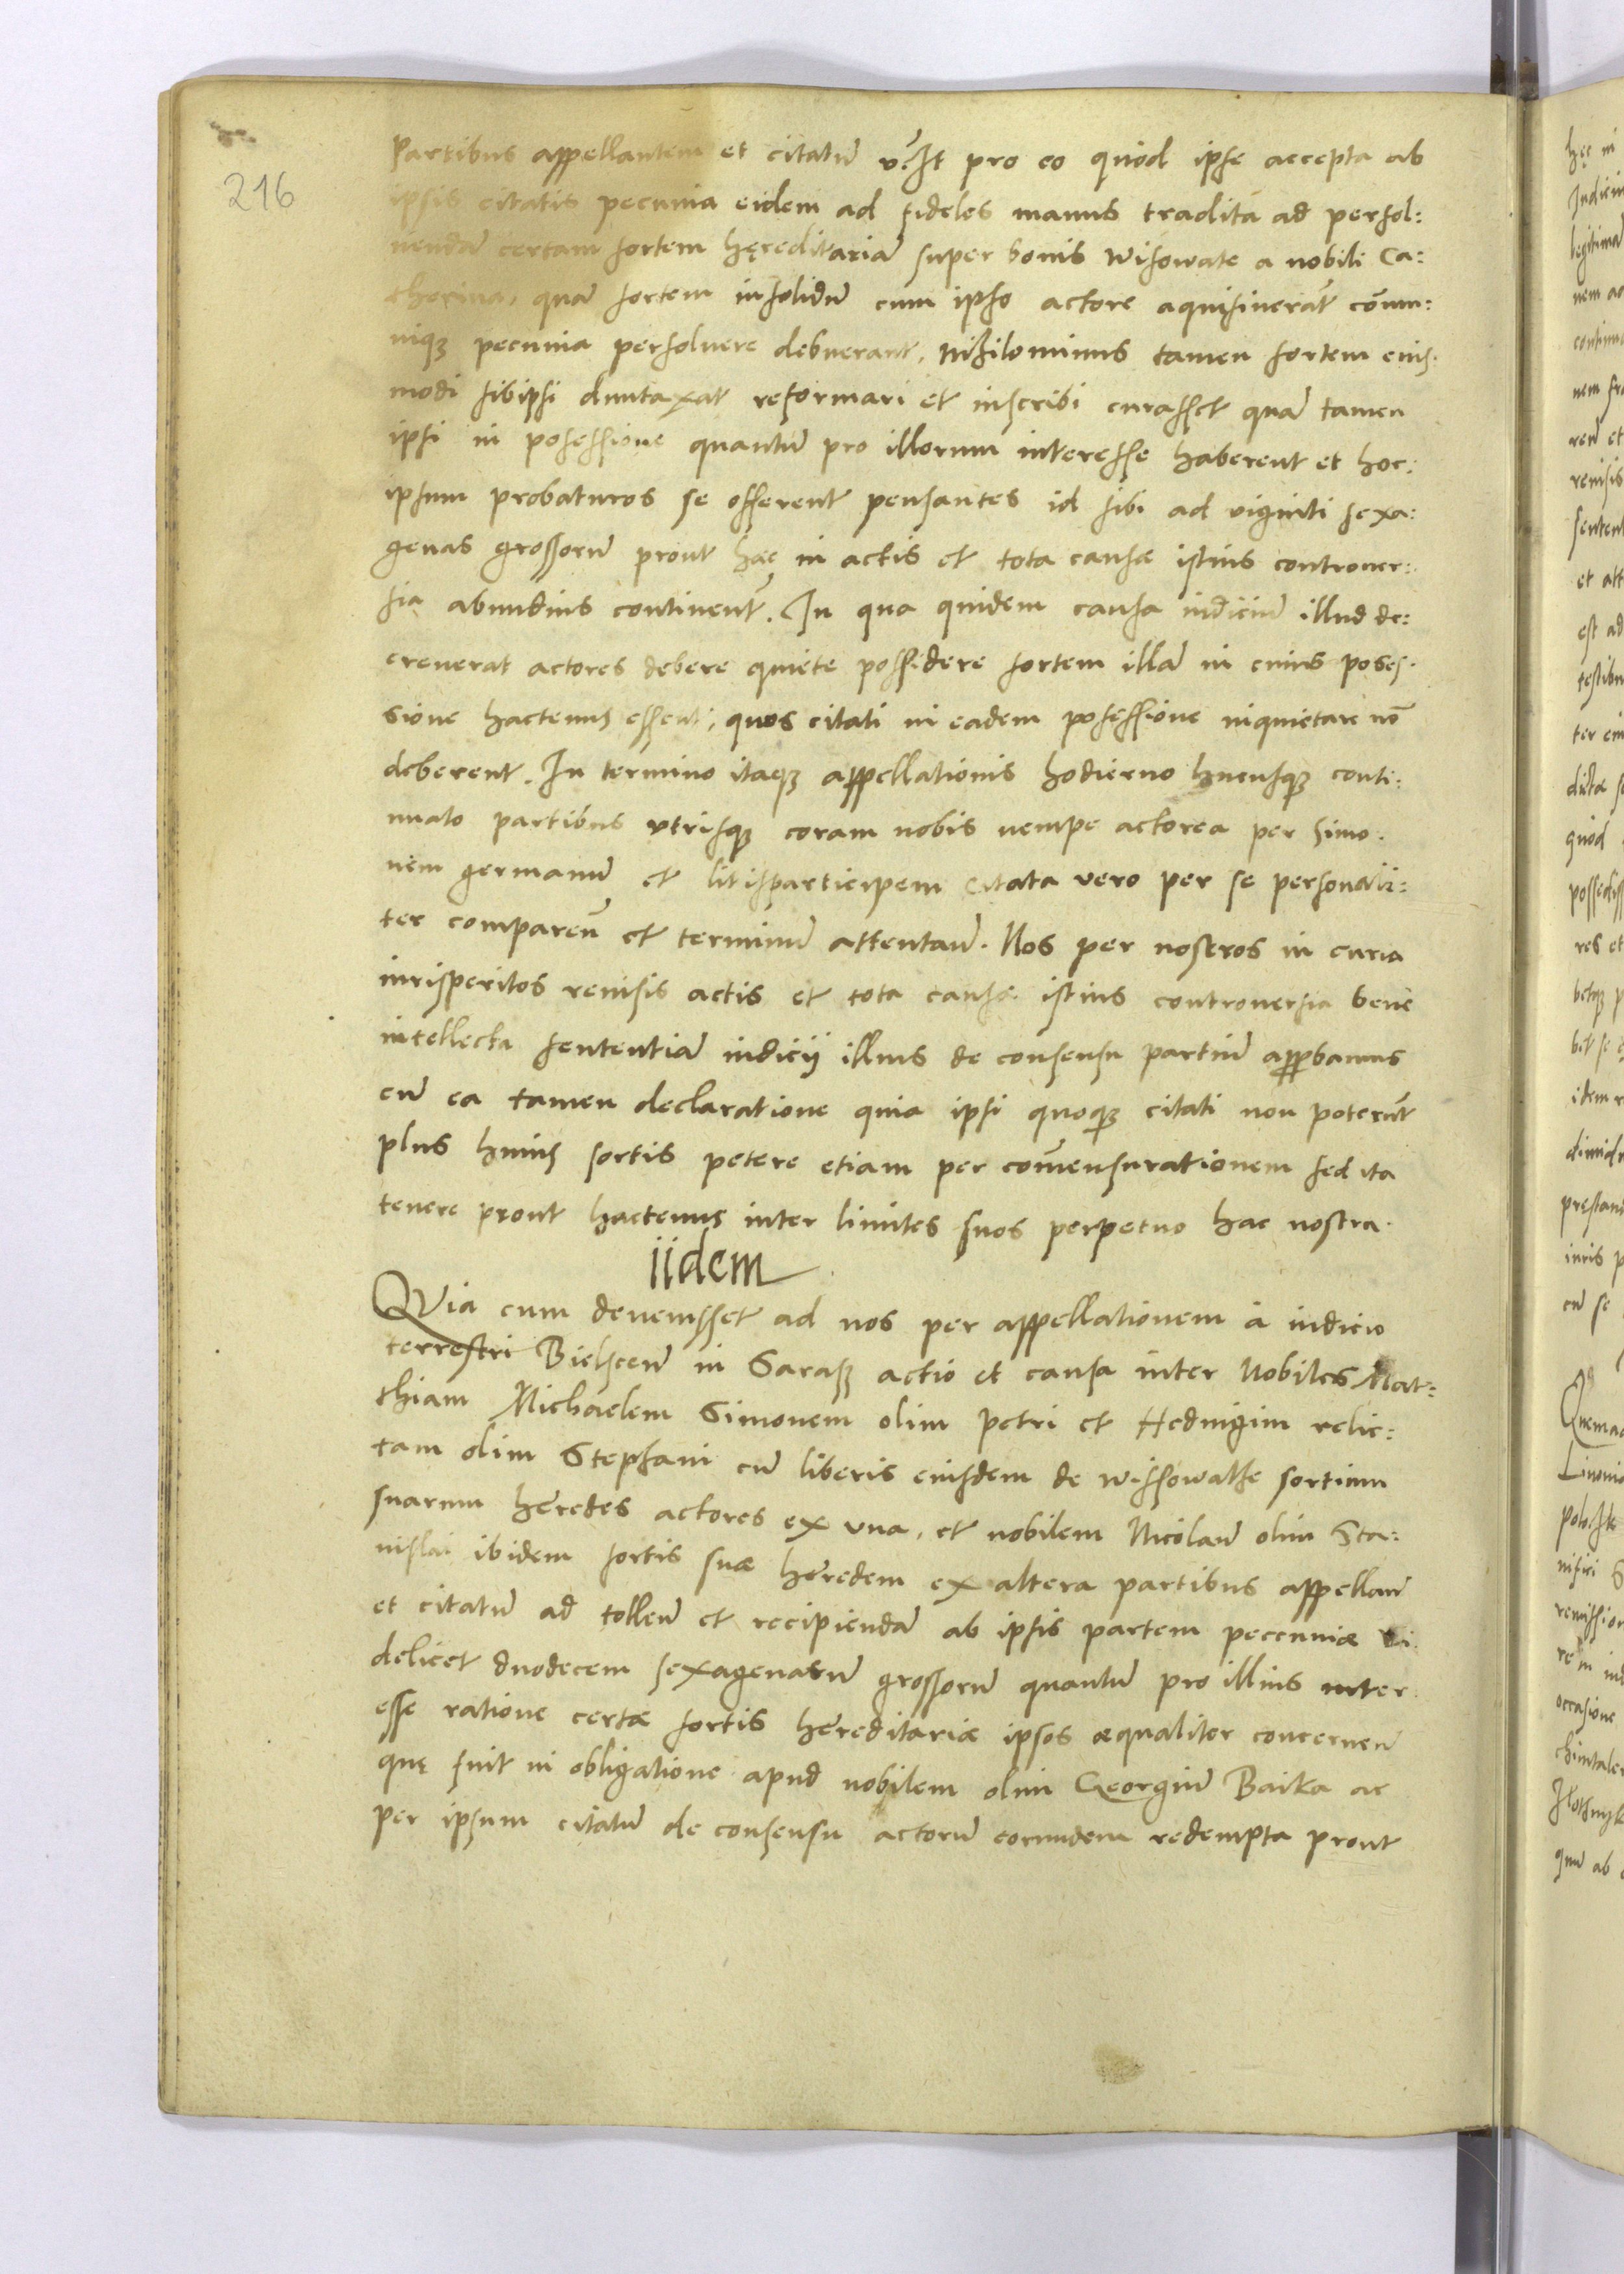 216
partibus appellantem et citatū v. It pro eo quod ipse accepta ab
ipsis citatis pecunia eidem ad fideles manus tradita ad persol:
uendā certam sortem hęreditariā super bonis wisowate a nobili Ca:
therina, quā sortem insolidū cum ipso actore aquisiuerāt com̄u:
niq3 pecunia persoluere debuerant, nihilominus tamen sortem eius:
modi sibiipsi duntaxat reformari et inscribi curasset quā tamen
ipsi in posessione quantū pro illorum interesse haberent et hoc:
ipsum probaturos se offerent pensantes id sibi ad viginti sexa:
genas grossorū prout hæc in actis et tota causæ istius controuer:
sia abundius continent̄. In qua quidem causa iudiciū illud de:
creuerat actores debere quiete possidere sortem illā in cuius poses:
sione hactenus essent, quos citati in eadem posessione inquietare nō
deberent. In termino itaq3 appellationis hodierno hucusq3 conti:
nuato partibus vtrisq3 coram nobis nempe actorea per Simo:
nem germanū et litisparticipem citata vero per se personali:
ter comparen̄ et terminū attentan̄. Nos per nostros in curia
iurisperitos reuisis actis et tota causæ istius controuersia bene
intellecta sententiā iudicij illius de consensu partiū approbamus
cū ea tamen declaratione quia ipsi quoq3 citati non poterūt
plus huius sortis petere etiam per com̄ensurationem sed ita
tenere prout hactenus inter limites suos perpetuo hac nostra.
iidem
QVia cum deuenisset ad nos per appellationem a iudicio
terrestri Bielscen̄ in Saraß actio et causa inter Nobiles Mat:
thiam Michaelem Simonem olim petri et Heduigim relic:
tam olim Stephani cū liberis eiusdem de wissowathe sortium
suarum heredes actores ex vna, et nobilem Nicolaū olim Sta:
nislai ibidem sortis suæ heredem ex altera partibus appellan̄
et citatū ad tollen̄ et recipiendā ab ipsis partem pecuniæ vi:
delicet duodecem sexagenarū grossorū quantū pro illius inter
esse ratione certæ sortis hereditariæ ipsos æqualiter concernen̄
quę fuit in obligatione apud nobilem olim Georgiū Baika ac
per ipsum citatū de consensu actorū eorundem redempta prout